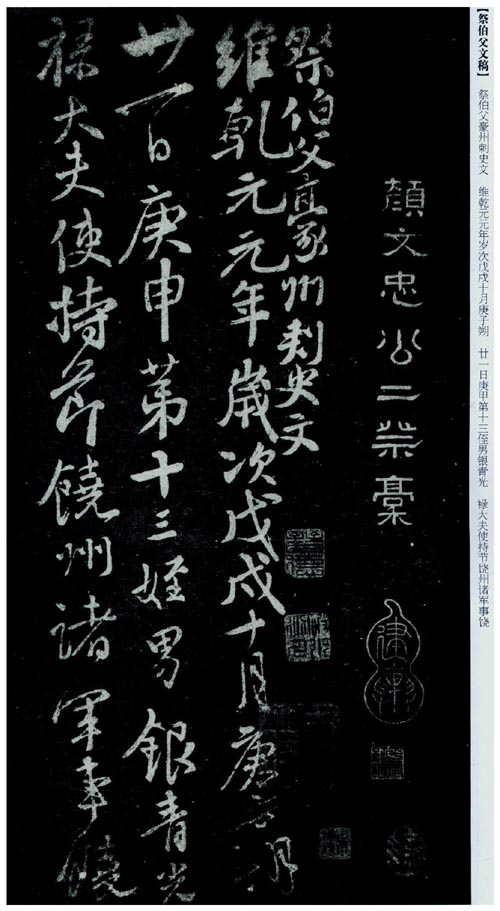 【祭伯父文稿】 祭伯父豪州刺史文 维乾元元年岁次戊戌十月庚子朔 廿一日庚甲第十三侄男银青光 禄大夫使持节饶州诸军事饶
顏文忠公二祭稾
祭伯父豪州刺史文
維乾元元年歲次戊戌十月庚子朔
廿一日庚申苐十三姪男銀青光
祿大夫使持節饒州諸軍事饒